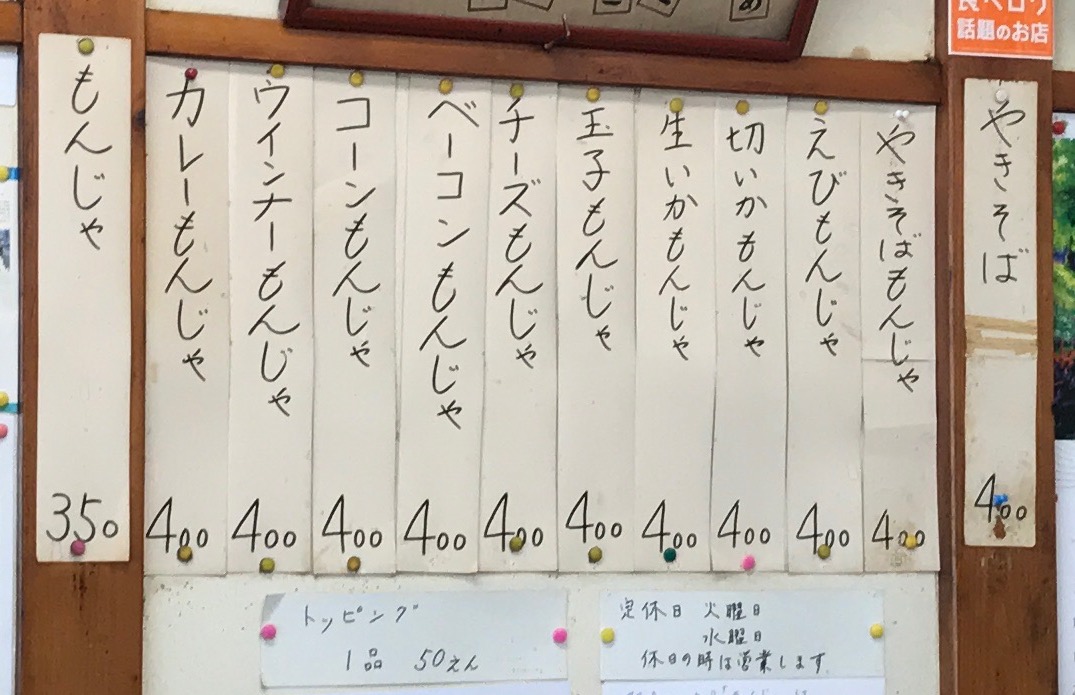 食べログ
話題のお店
やきそば 400
やきそばもんじゃ 400
えびもんじゃ 400
切いかもんじゃ 400
生いかもんじゃ 400
玉子もんじゃ 400
チーズもんじゃ 400
ベーコンもんじゃ 400
コーンもんじゃ 400
ウインナーもんじゃ 400
カレーもんじゃ 400
もんじゃ 350
トッピング
1品 50えん
定休日 火曜日
水曜日
休日の時は営業します